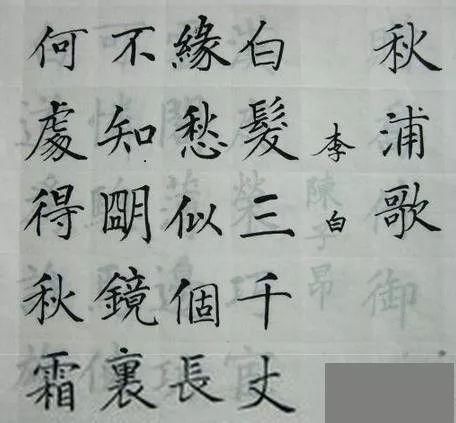 秋浦歌
李白
白髮三千丈
緣愁似個長
不知朙鏡裏
何處得秋霜